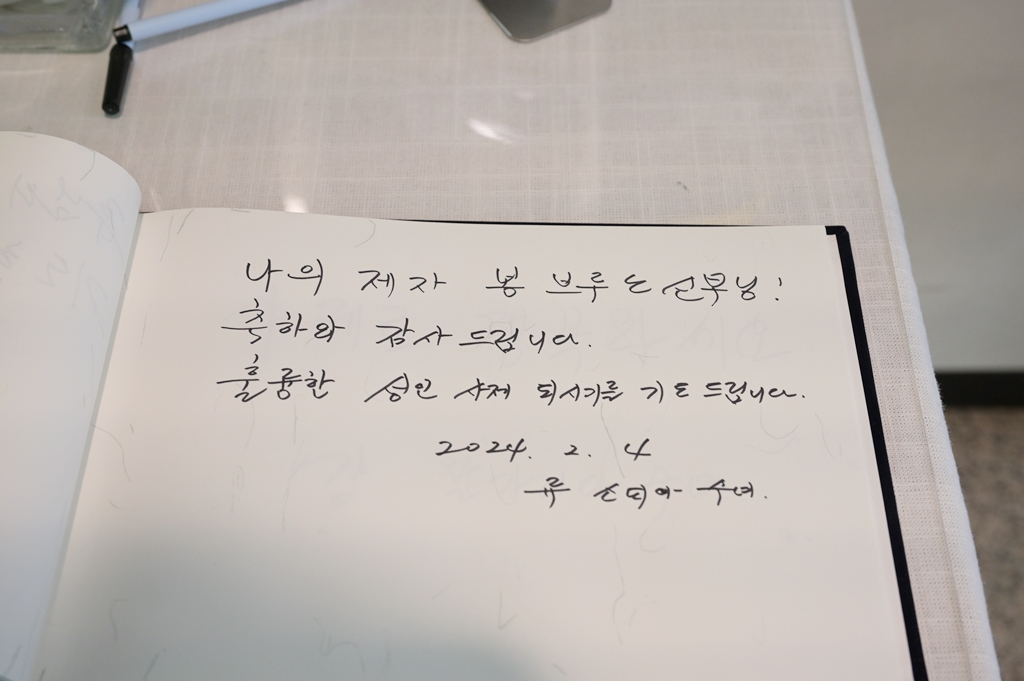 나의 제자 봉 브루노 신부님!
축하와 감사드립니다.
훌륭한 성인 사제 되시기를 기도드립니다.
2024. 2. 4
류 소피아 수녀.